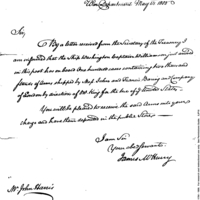 War Department May 15 1800
Sir,
By a letter received from the Secretary of the Treasury I
am informed that the Ship Washington Captain Williamson just arrived
in this port has on board One hundred cases containing two thousand
of Arms shipped by Messrs John and Francis Baring and Company
of London by direction of Mr King for the use of the United States.
You will be pleased to receive the said Arms into your
charge and have them deposited in the public Store
I am Sir
Your Obed Servant
James McHenry
Mr John Harris